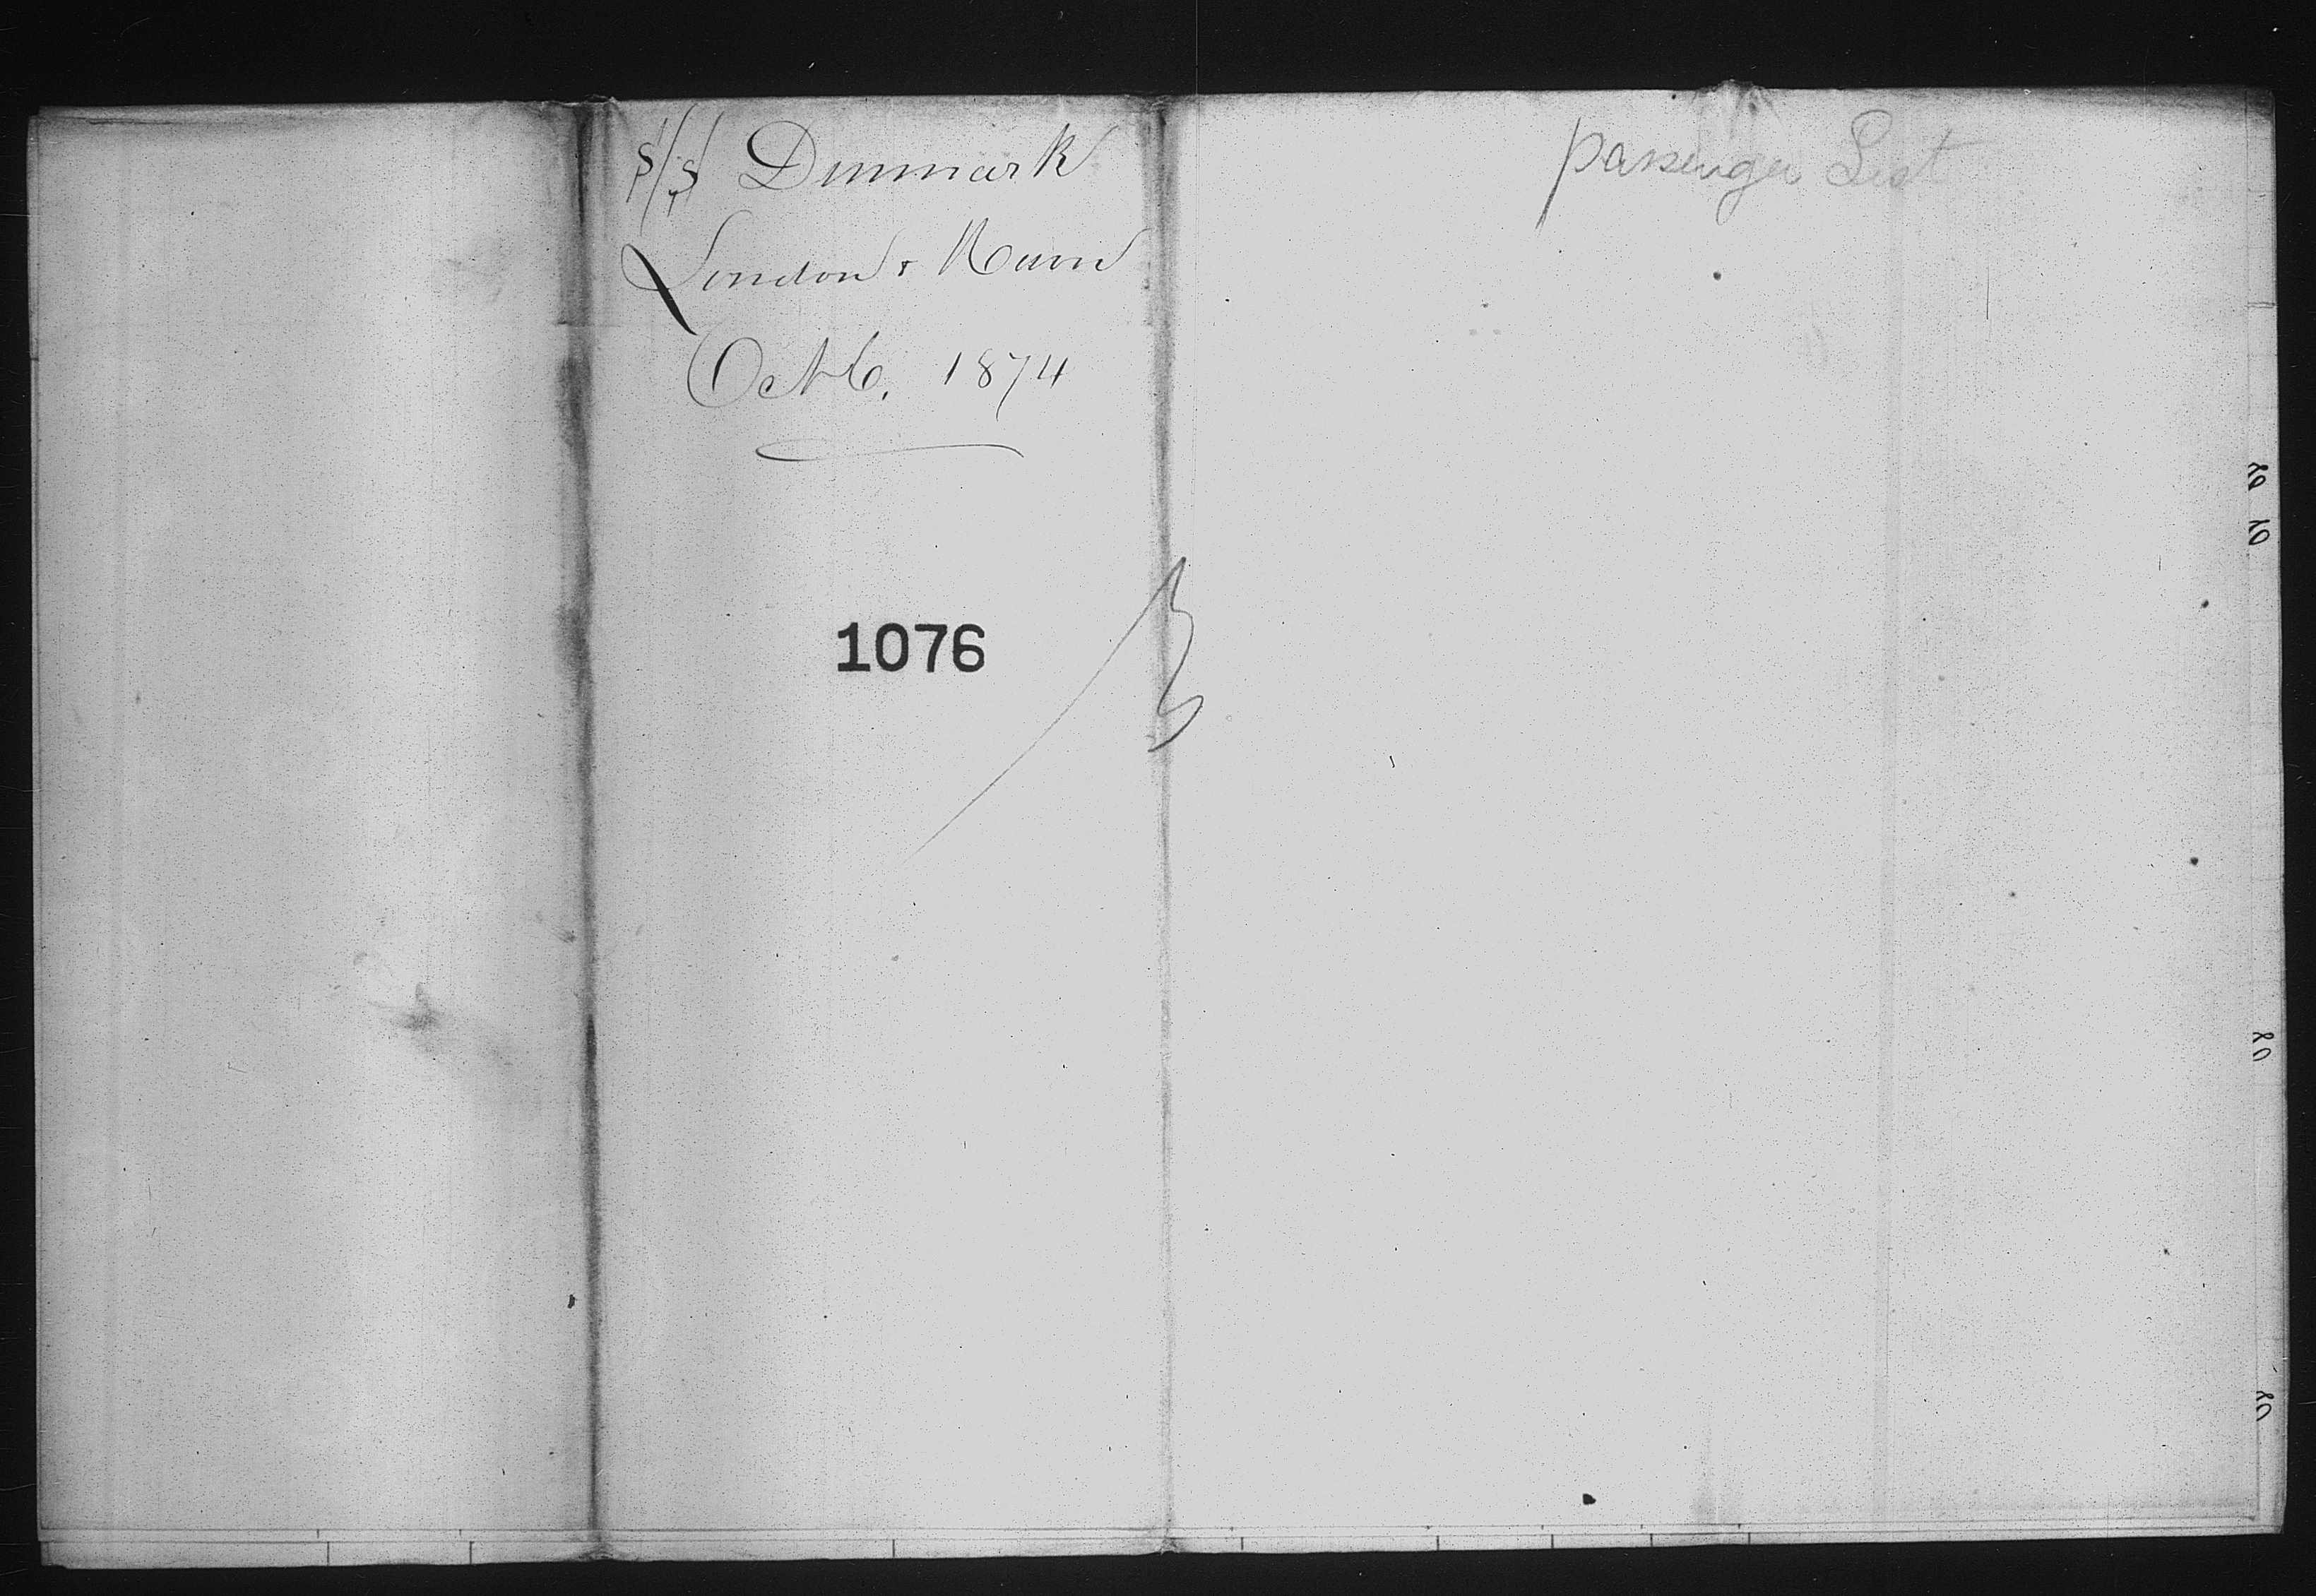 S/S Denmark
London & Havre
Oct 6. 1874
1076
passenger List